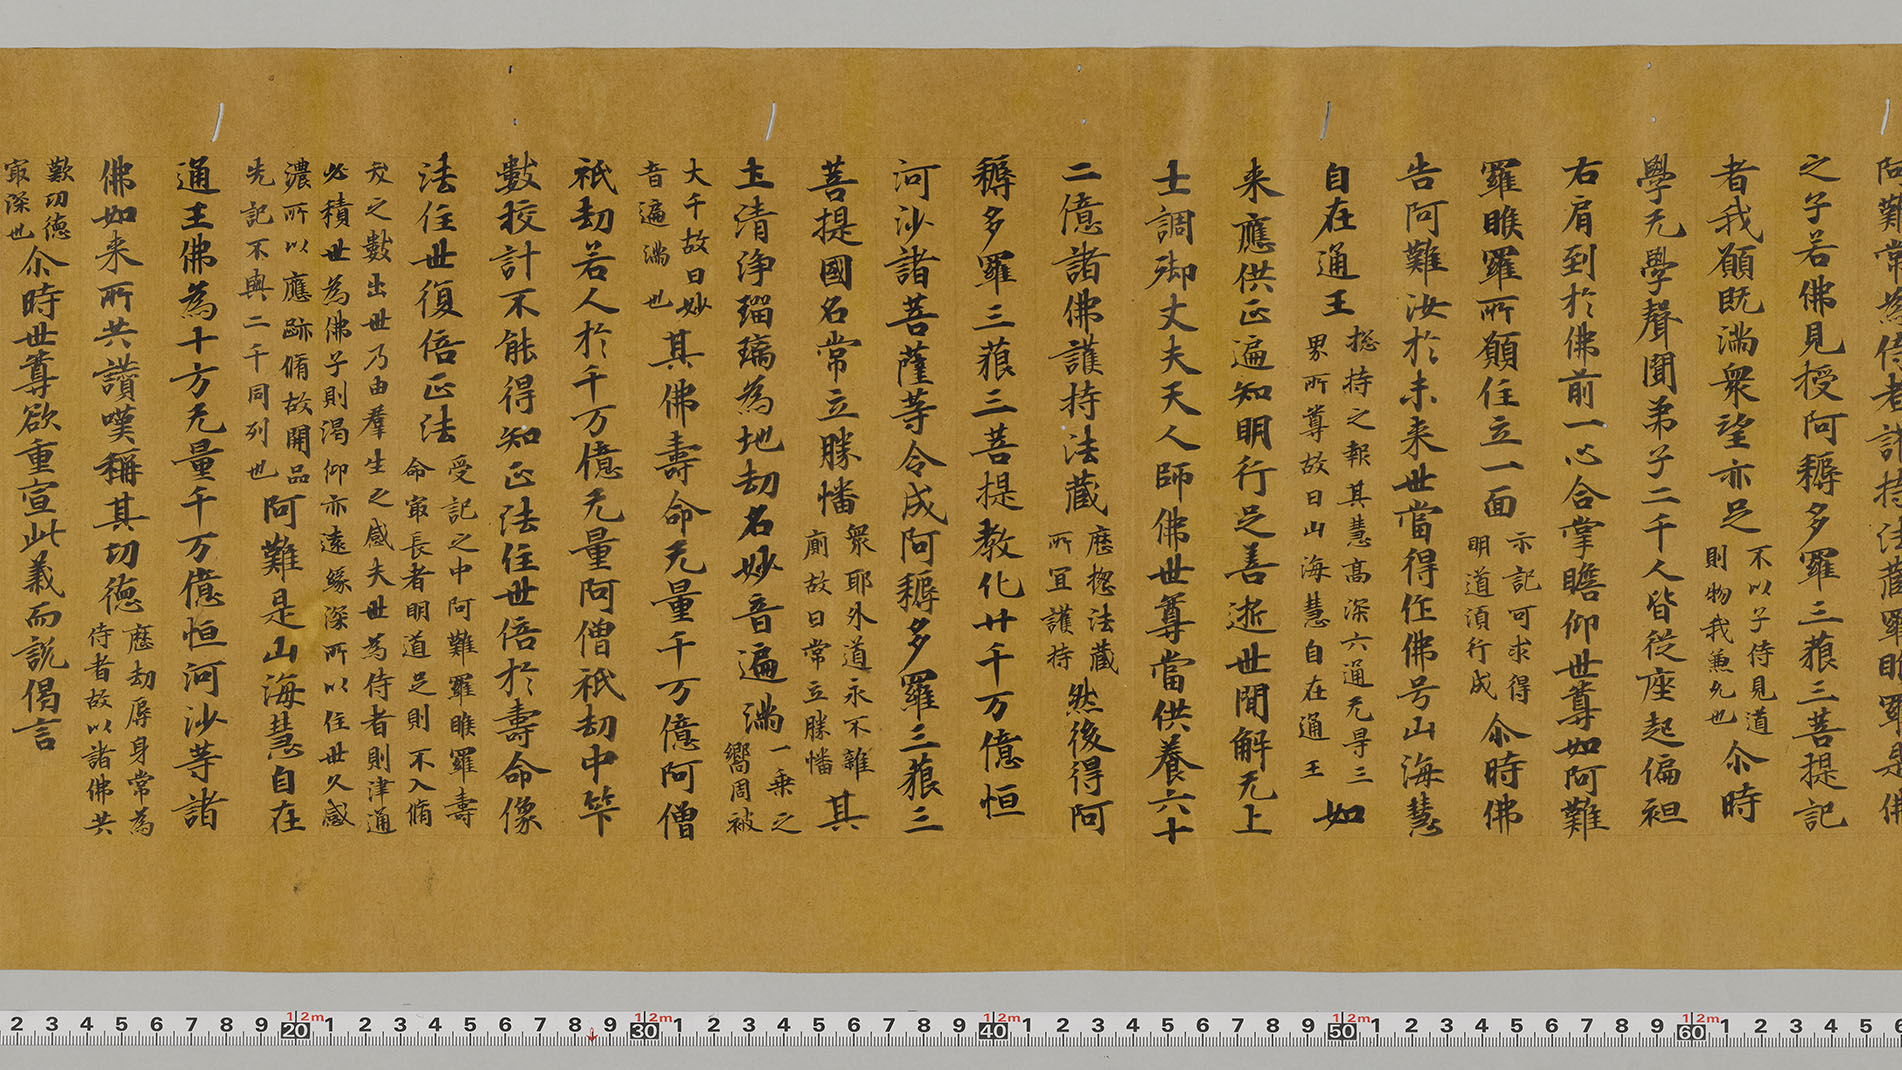 阿難常為侍者護持法藏羅睺羅是佛
之子若佛見授阿耨多羅三藐三菩提記
者我願既滿衆望亦足不以子侍見道則物我兼允也尒時
學无學聲聞弟子二千人皆從座起偏袒
右肩到於佛前一心合掌瞻仰世尊如阿難
羅睺羅所願住立一面示記可求得明道湏行成尒時佛
告阿難汝於未来世當得作佛号山海慧
自在通王揔持之報其慧高深六通无㝵三界所尊故曰山海慧自在通王如
来應供正遍知明行足善逝世間解无上
士調御丈夫天人師佛世尊當供養六十
二億諸佛護持法藏歷揔法藏所冝護持然後得阿
耨多羅三藐三菩提教化廿千万億恒
河沙諸菩薩等令成阿耨多羅三藐三
菩提國名常立勝幡衆耶外道永不雜廁故曰常立勝幡其
土清浄瑠璃為地劫名妙音遍滿一乗之嚮周被
大千故曰妙音遍滿也其佛壽命无量千万億阿僧
祇劫若人於千万億无量阿僧祇劫中筭
數挍計不能得知正法住世倍於壽命像
法住世復倍正法受記之中阿難羅睺羅壽命㝡長者明道足則不入脩
之數出世乃由羣生之感夫世為侍者則津通必積世為佛子則渴仰亦遠緣深所以住世久感
濃所以應跡脩故開品先記不與二千同列也阿難是山海慧自在
通王佛為十方无量千万億恒河沙等諸
佛如来所共讚嘆稱其切徳歷劫辱身常為侍者故以諸佛共
歎切徳㝡深也尒時世尊欲重宣此義而說偈言